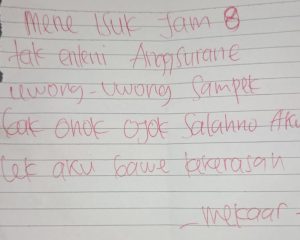 Mene isuk Jam 8
tak enteni Angsurane
uwong-uwong sampek
Gak onok ojok salahno Aku
lek aku gawe kekerasan
_mekaar_